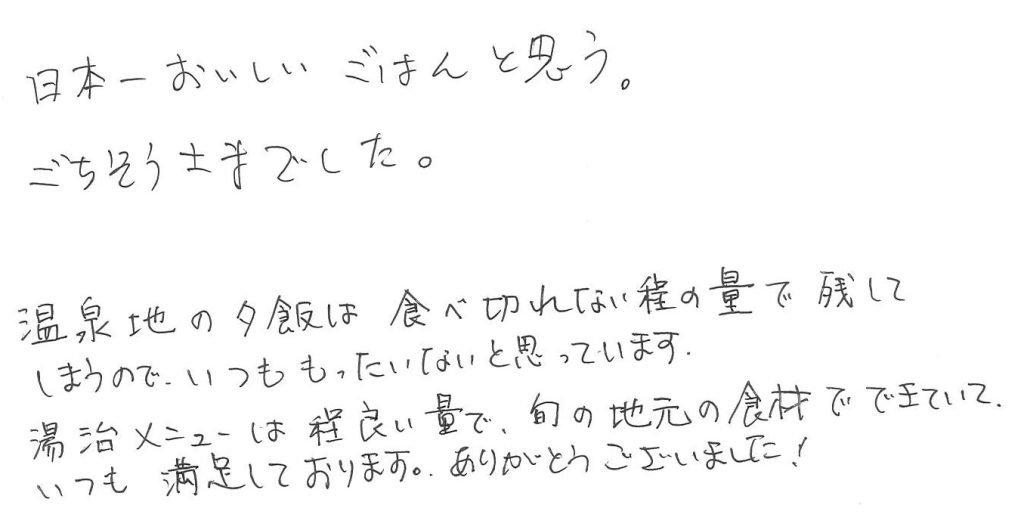 日本一おいしいごはんと思う。
ごちそうさまでした。
温泉地の夕飯は食べ切れない程の量で残して
しまうので、いつももったいないと思っています。
湯治メニューは程良い量で、旬の地元の食材でできていて、
いつも満足しております。ありがとうございました!